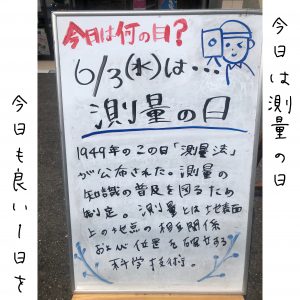 今日は何の日?
6/3(水)は・・・
測量の日
1949年のこの日「測量法」
が公布された。測量の
知識の普及を図るため
制定。測量とは地表面
上の地点の相互関係
および位置を確立する
科学技術。
今日は測量の日
今日も良い1日を